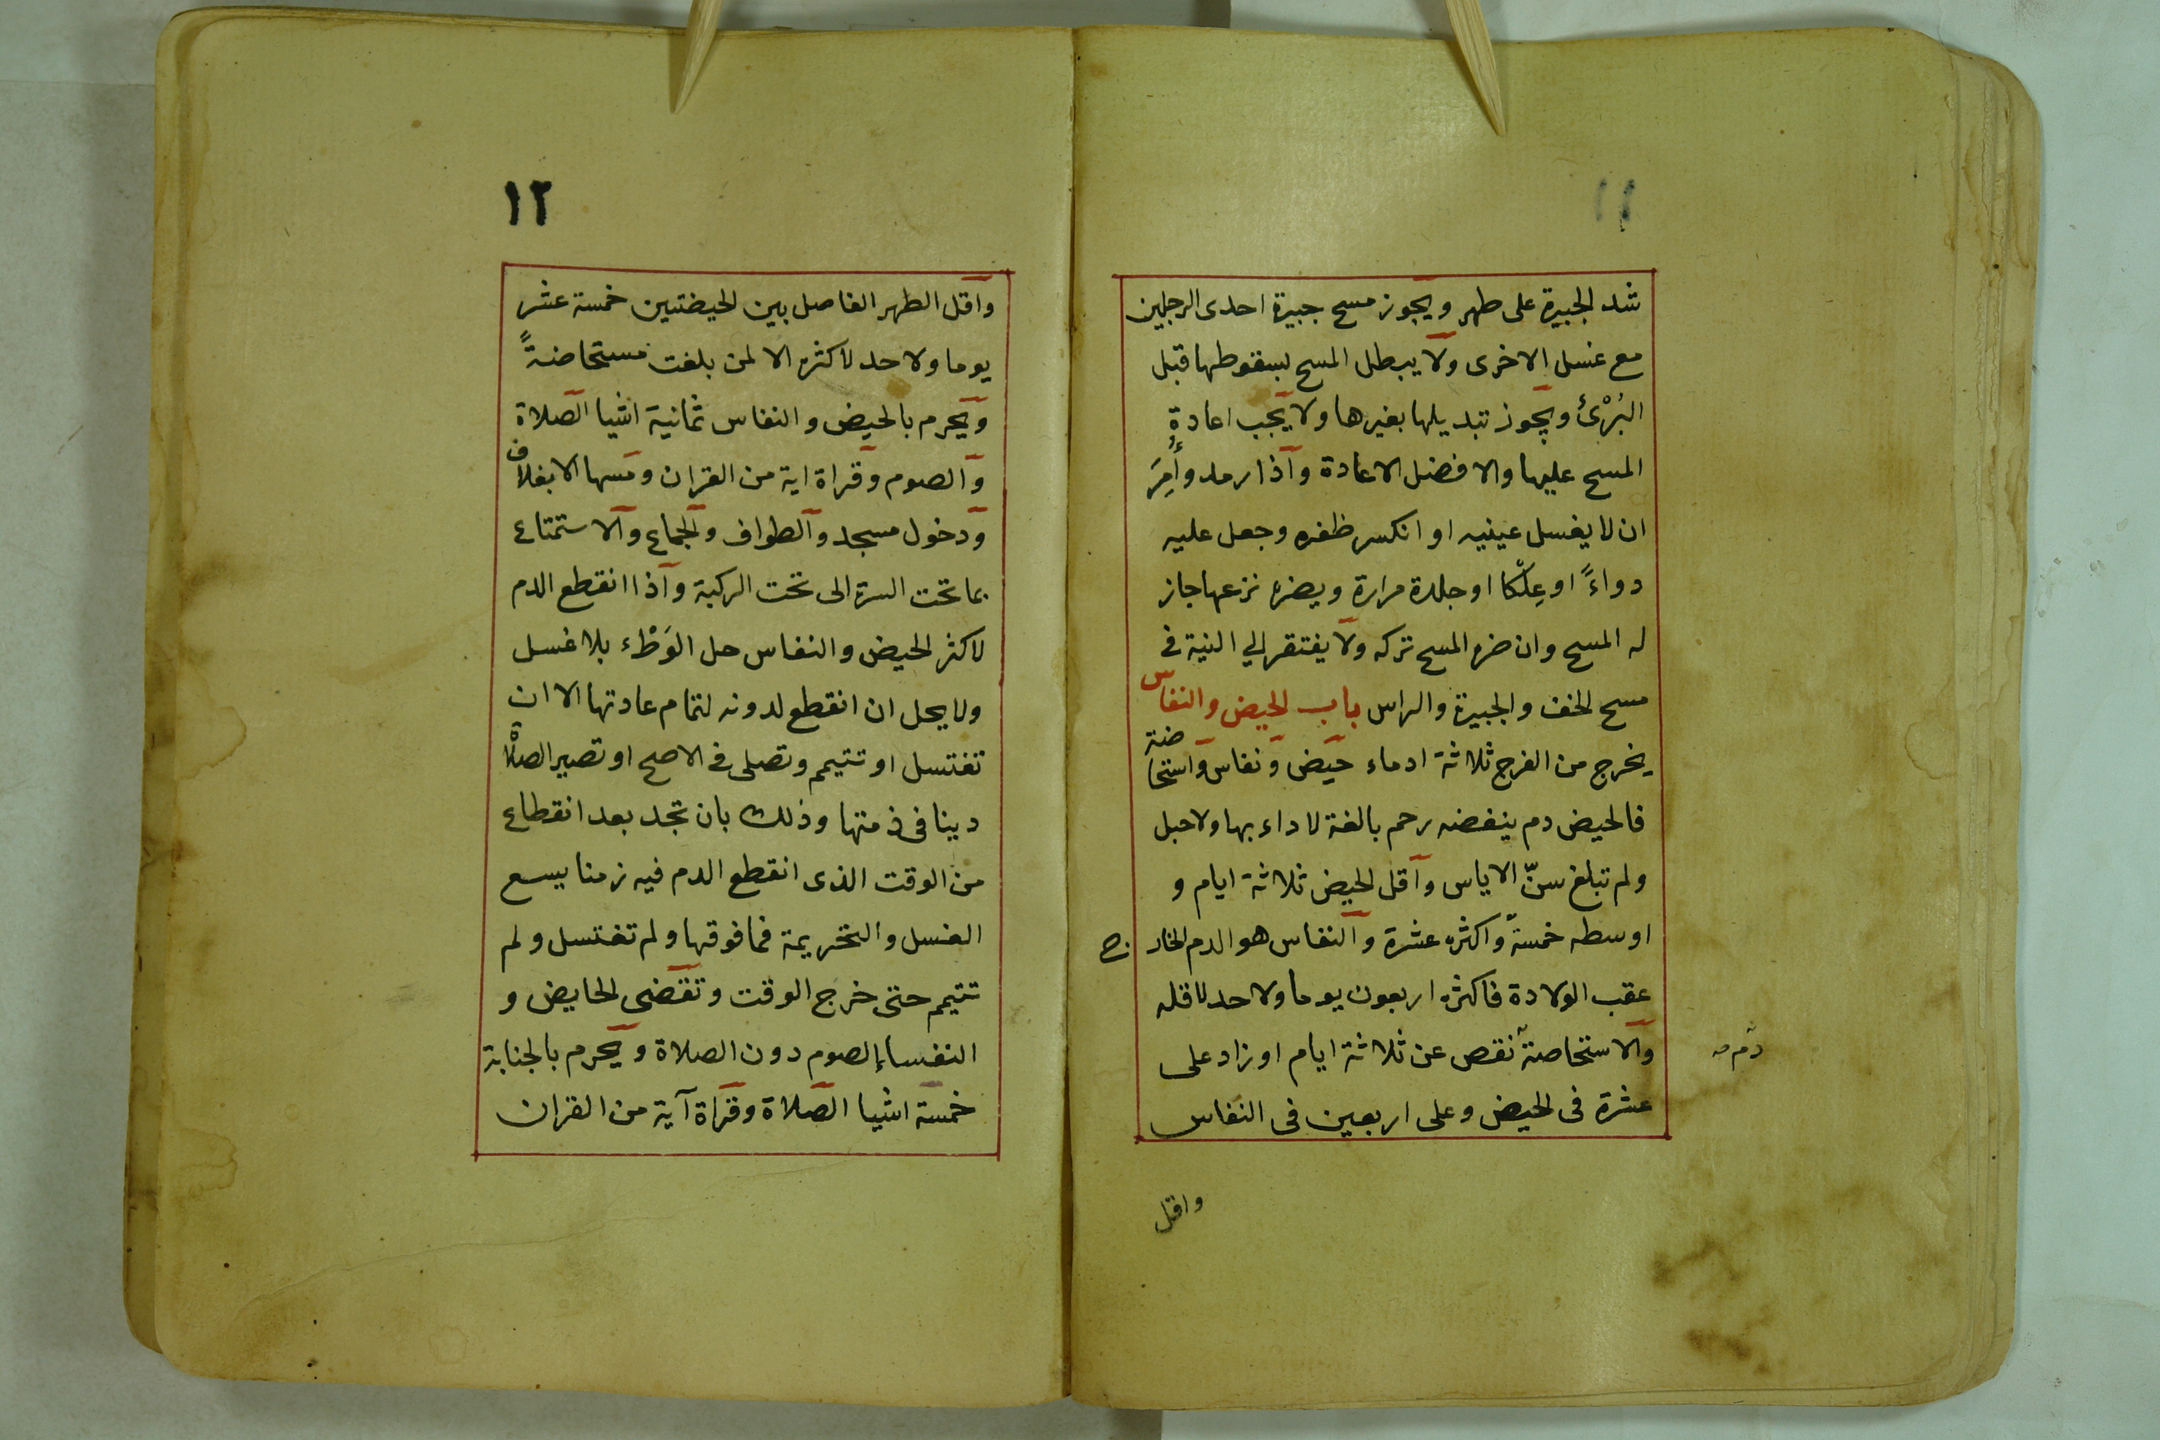 ١١
شد الجبيرة على طهر ويجوز مسح جبيرة احدى الرجلين
مع غسل الاخرى ولا يبطل المسح بسقوطها قبل
البُرْئ ويجوز تبديلها بغيرها ولا يجب اعادة
المسح عليها والافضل الاعادة واذا رمد وأُمِرَ
ان لا يغسل عينيه او انكسر ظفره وجعل عليه
دواءً او عِلْكا او جلدة مرارة ويضره نزعها جاز
له المسح وان ضره المسح تركه ولا يفتقر الي النية في
مسح الخف والجبيرة والراس باب الحيض والنفاس
يخرج من الفرج ثلاثة ادماء حيض ونفاس واستحاضة
فالحيض دم ينفضه رحم بالغة لا داء بها ولا حبل
ولم تبلغ سنّ الاياس واقل الحيض ثلاثة ايام و
اوسطه خمسة واكثره عشرة والنفاس هو الدم الخارج
عقب الولادة فاكثره اربعون يوما ولا حد لاقله
والاستحاصة نقص عن ثلاثة ايام او زاد على
دم صه
عشرة فى الحيض وعلى اربعين فى النفاس
واقل
١٢
واقل الطهر الفاصل بين الحيضتين خمسة عشر
يوما ولا حد لاكثره الا لمن بلغت مستحاضةً
ويحرم بالحيض والنفاس ثمانية اشيا الصلاة
والصوم وقراة اية من القران ومسها الا بغلاف
ودخول مسجد والطواف والجماع والاستمتاع
بما تحت السرة الى تحت الركبة واذا انقطع الدم
لاكثر الحيض والنفاس حل الوَطْء بلا غسل
ولا يحل ان انقطع لدونه لتمام عادتها الا ان
تغتسل او تتيمم وتصلى في الاصح او تصير الصلاة
دينا فى ذمتها وذلك بان تجد بعد انقطاع
من الوقت الذى انقطع الدم فيه زمنا يسع
الغسل والتخريمة فما فوقها ولم تغتسل ولم
تتيم حتى خرج الوقت وتقضى الحايض و
النفساء الصوم دون الصلاة ويحرم بالجنابة
خمسة اشيا الصلاة وقراة آية من القران